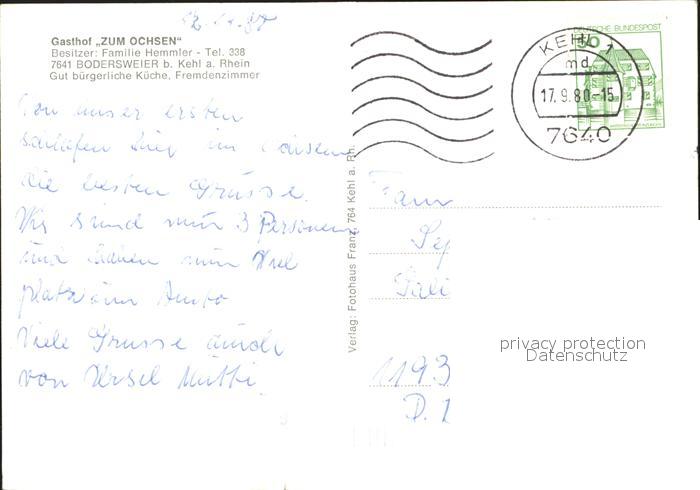 Gasthof „ZUM OCHSEN"
Besitzer: Familie Hemmler - Tel. 338
7641 BODERSWEIER b. Kehl a. Rhein
Gut bürgerliche Küche, Fremdenzimmer
DEUTSCHE BUNDESPOST
50
KEHL 1
md
17.9.80-15
7640
Von unser ersten
schlafen hier im Ochsen
die besten Grüsse.
Wir sind nur 3 Personen
und haben nun Viel
platz im Auto
Viele Grüsse auch
von Ursel Mutti
Verlag: Fotohaus Franz, 764 Kehl a. Rh.
Fam
1193
D. 1
privacy protection
Datenschutz